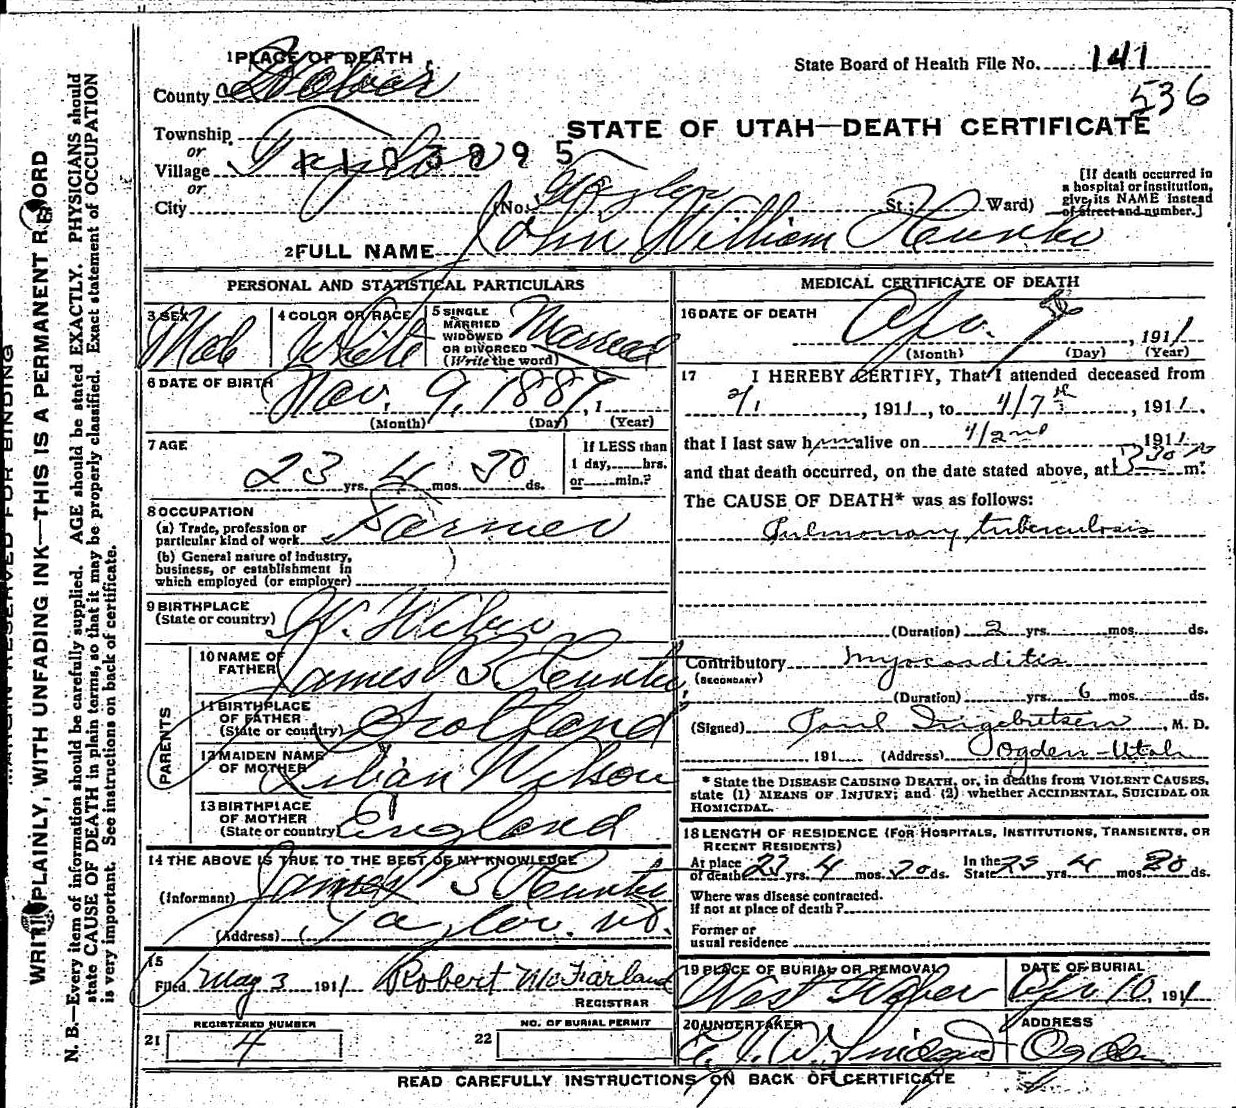 1 PLACE OF DEATH
County Weber
State Board of Health File No. 141
536
Township
or
Village Taylor
1103095
or
City
STATE OF UTAH—DEATH CERTIFICATE
(No. Taylor St.; Ward)
[If death occurred in
a hospital or institution,
give its NAME instead
of street and number.]
2 FULL NAME John William
PERSONAL AND STATISTICAL PARTICULARS
3 SEX Male
4 COLOR OR RACE White
5 SINGLE
MARRIED
WIDOWED
OR DIVORCED
(Write the word) Married
6 DATE OF BIRTH Nov. 9, 1887, 1
(Month) (Day) (Year)
7 AGE
23 yrs. 4 mos. ds.
If LESS than
1 day, hrs.
or min.?
8 OCCUPATION
(a) Trade, profession or
particular kind of work Farmer
(b) General nature of industry,
business, or establishment in
which employed (or employer)
9 BIRTHPLACE
(State or country) W. Weber
PARENTS
10 NAME OF
FATHER James B
11 BIRTHPLACE
OF FATHER
(State or country) Scotland
12 MAIDEN NAME
OF MOTHER Lilian Wilson
13 BIRTHPLACE
OF MOTHER
(State or country) England
14 THE ABOVE IS TRUE TO THE BEST OF MY KNOWLEDGE
(Informant) James B
(Address) Taylor
15
Filed May 3 1911 Robert McFarland
REGISTRAR
REGISTERED NUMBER
21 4
NO. OF BURIAL PERMIT
22
MEDICAL CERTIFICATE OF DEATH
16 DATE OF DEATH
Apr. , 1911
(Month) (Day) (Year)
17 I HEREBY CERTIFY, That I attended deceased from
, 1911, to 4/7th, 1911,
that I last saw him alive on 4/2nd 1911
and that death occurred, on the date stated above, at m.
The CAUSE OF DEATH* was as follows:
Pulmonary tuberculosis
(Duration) 2 yrs. mos. ds.
Contributory Myocarditis
(SECONDARY)
(Duration) yrs. 6 mos. ds.
(Signed) Paul Ingebretsen, M. D.
191 (Address) Ogden-Utah
* State the DISEASE CAUSING DEATH, or, in deaths from VIOLENT CAUSES,
state (1) MEANS OF INJURY; and (2) whether ACCIDENTAL, SUICIDAL OR
HOMICIDAL.
18 LENGTH OF RESIDENCE (FOR HOSPITALS, INSTITUTIONS, TRANSIENTS, OR
RECENT RESIDENTS)
At place
of death 23 yrs. 4 mos. ds. In the
State yrs. 4 mos. ds.
Where was disease contracted.
If not at place of death?
Former or
usual residence
19 PLACE OF BURIAL OR REMOVAL
West Weber
DATE OF BURIAL
Apr 10, 1911
20 UNDERTAKER
ADDRESS
Ogden
READ CAREFULLY INSTRUCTIONS ON BACK OF CERTIFICATE
MARGIN RESERVED FOR BINDING
WRITE PLAINLY, WITH UNFADING INK—THIS IS A PERMANENT RECORD
N. B.—Every item of information should be carefully supplied. AGE should be stated EXACTLY. PHYSICIANS should
state CAUSE OF DEATH in plain terms, so that it may be properly classified. Exact statement of OCCUPATION
is very important. See instructions on back of certificate.